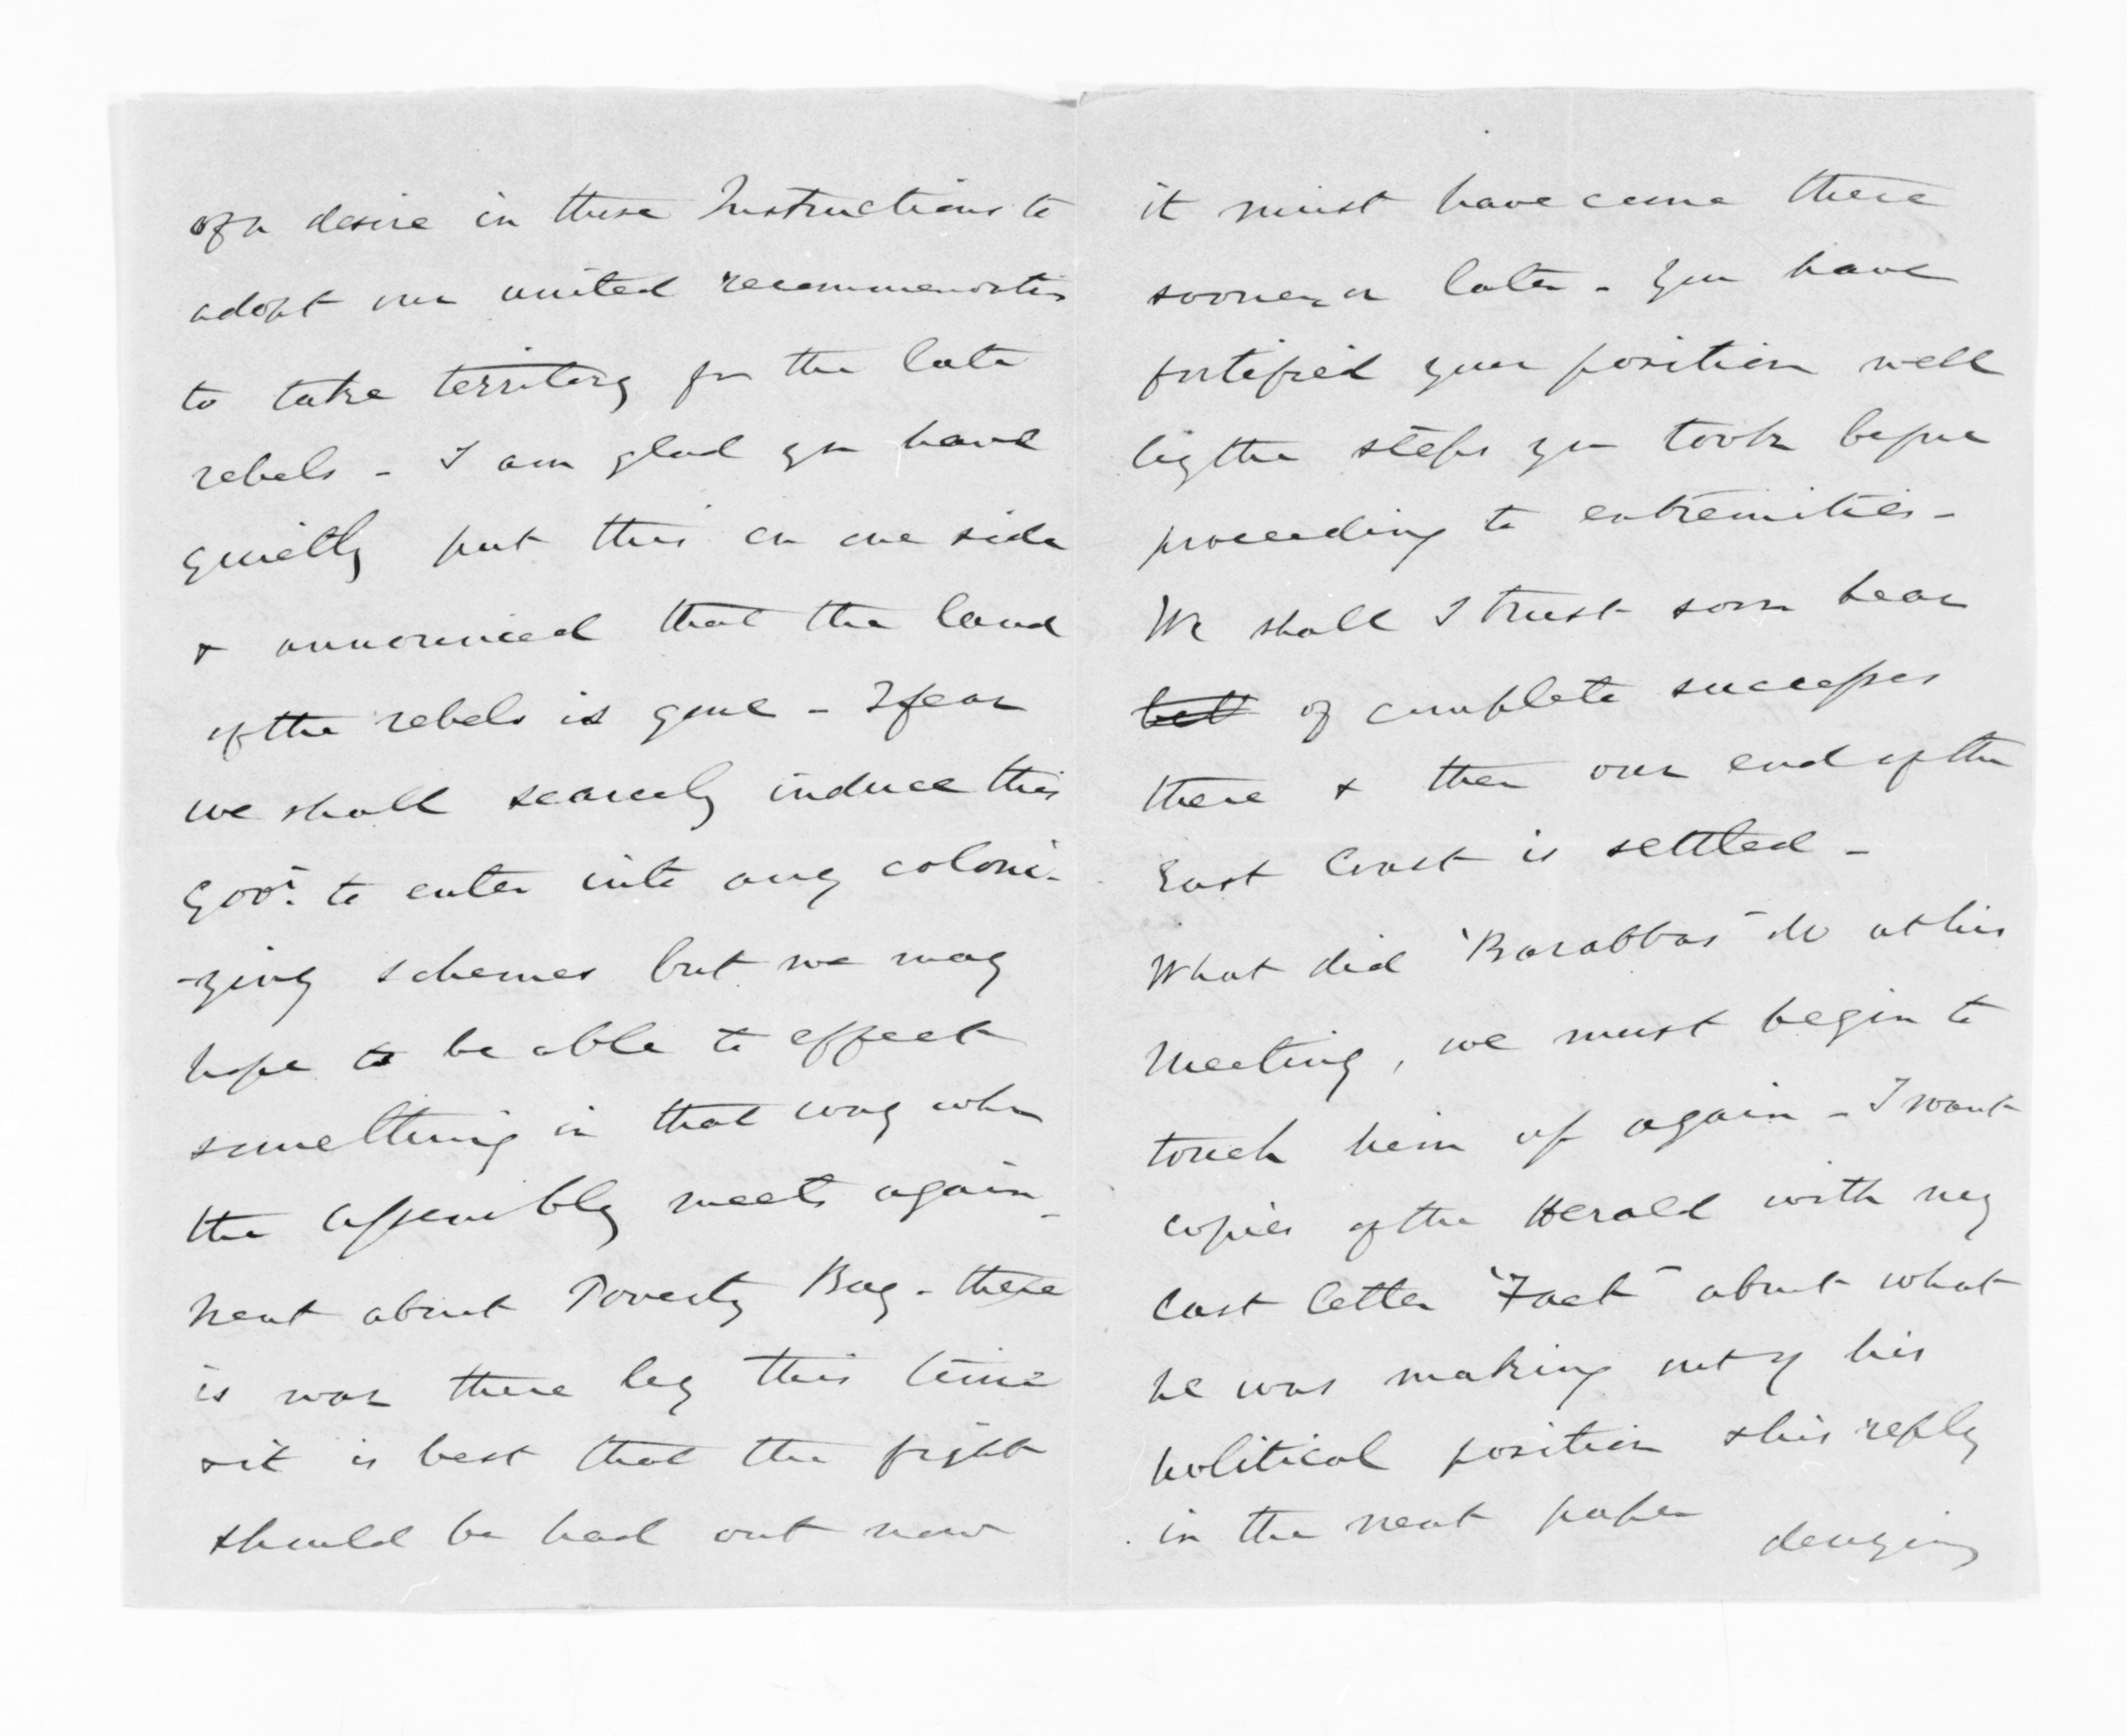 of a desire in these Instructions to
adopt our united recommendation
to take territory for the late
rebels - I am glad you have
quietly put this on one side
& announced that the land
of the rebels is gone - I fear
we shall scarcely induce this
Govr. to enter into any coloni-
-zing schemes but we may
hope to be able to effect
something in that way when
the Assembly meets again -
Next about Poverty Bay - there
is war there by this time
& it is best that the fight
should be had out now
it must have come there
sooner or later - You have
fortified your position well
by the steps you took before
proceeding to extremities -
We shall I trust soon hear
of complete successes
there & then our end of the
East Coast is settled -
What did "Barabbas" do at his
Meeting, we must begin to
touch him up again - I want
copies of the Herald with my
last letter "Fact" about what
he was making out of his
political position & his reply
in the next paper denying